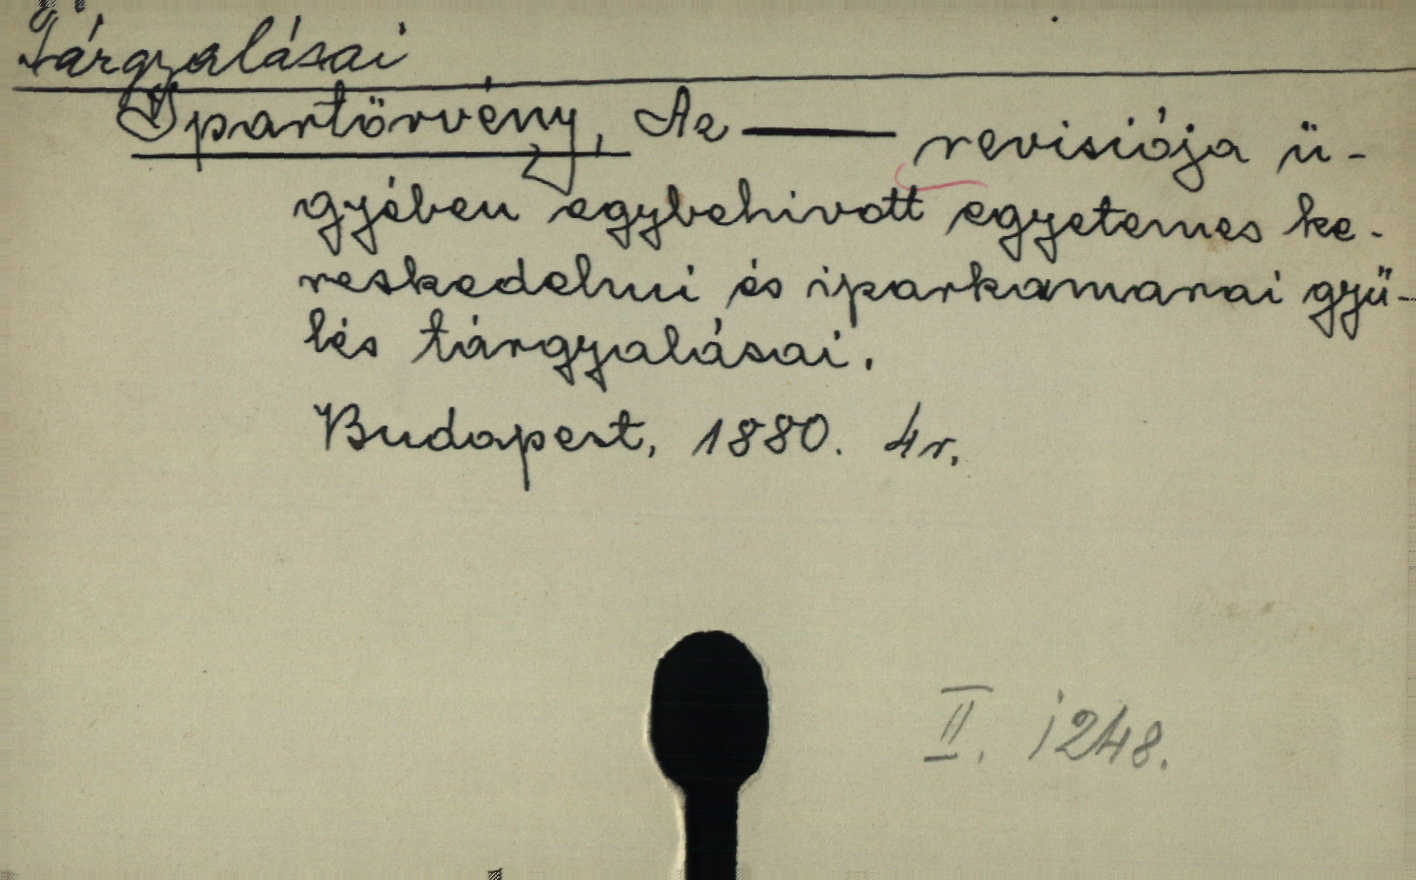 Tárgyalásai
Ipartörvény, Az —— revisiója ü-
gyében egybehivott egyetemes ke-
reskedelmi és iparkamarai gyü-
lés tárgyalásai.
Budapest, 1880. 4r.
II. i248.